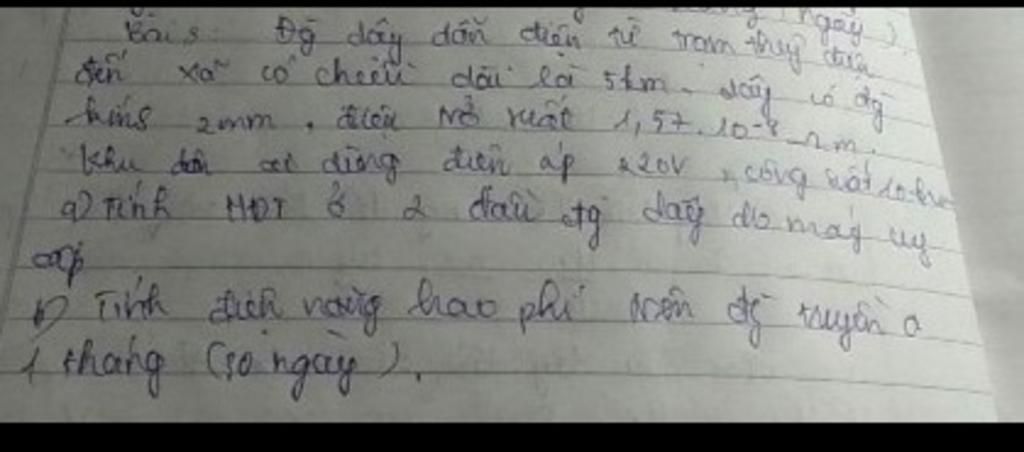 ngày).
Bài 5: Đg dây dẫn điện từ trạm thuỷ điện
đến xã có chiều dài là 5km. dây có đg
kính 2mm. điện trở suất 1,57.10⁻⁸ Ωm.
khu dân cư dùng điện áp 220V, công suất 10kw
a) Tính HĐT ở 2 đầu đg dây do máy uy
cấp
b) Tính điện năng hao phí trên đg truyền ở
1 tháng (30 ngày).